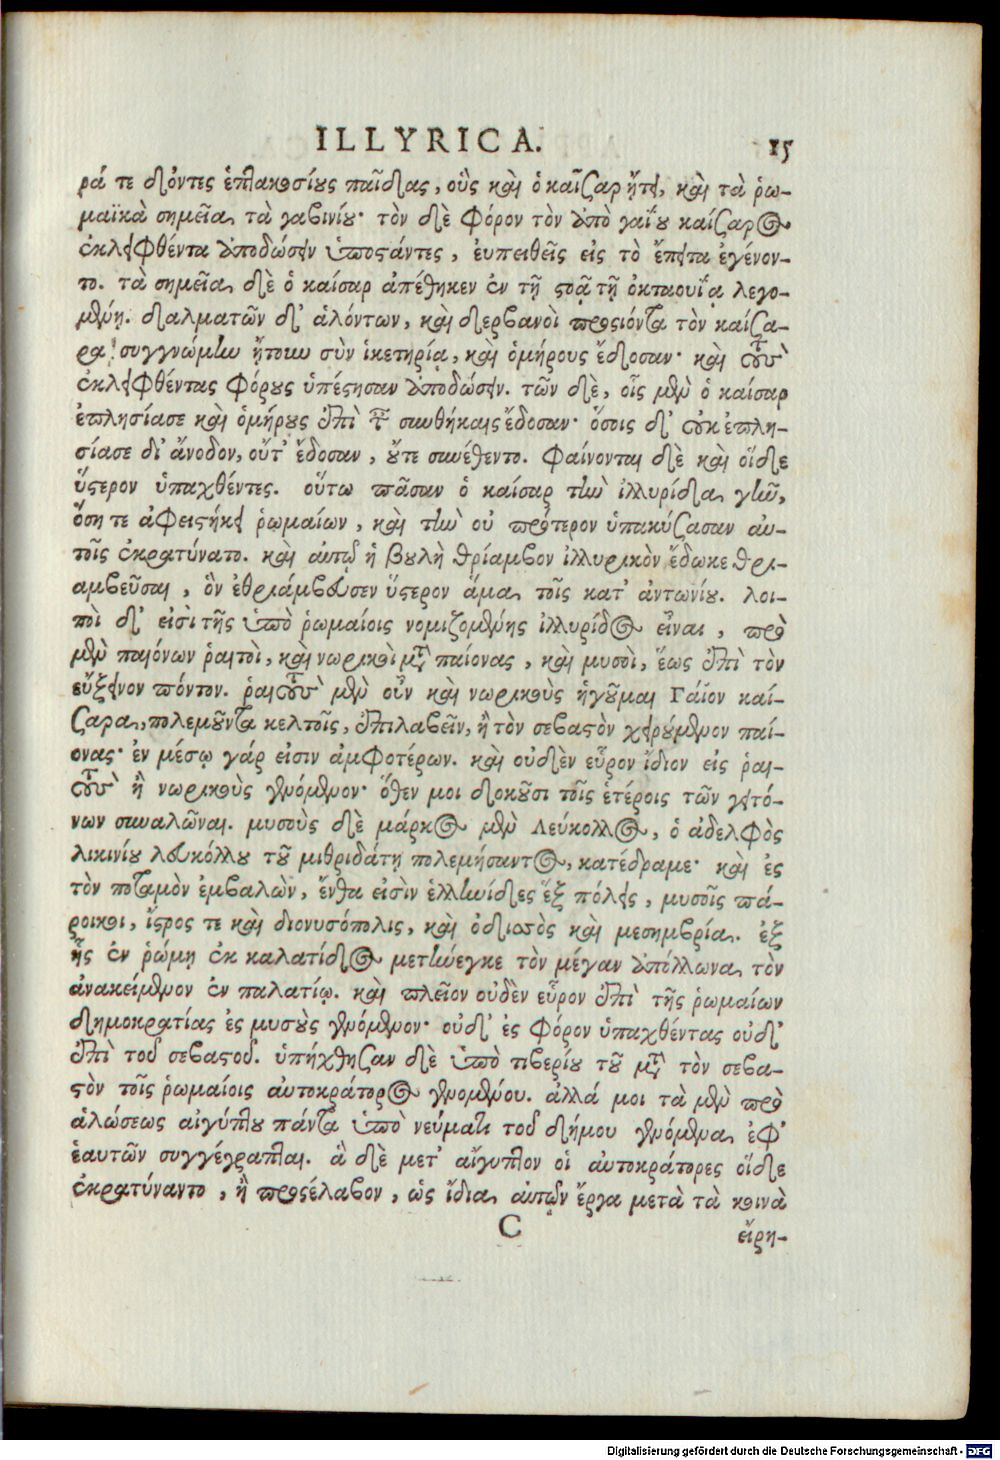 ILLYRICA. 15
ρά τε δόντες ἑπτακοσίους παῖδας, οὓς καὶ ὁ καῖσαρ ᾔτει, καὶ τὰ ῥω-
μαϊκὰ σημεῖα τὰ γαβινίου· τὸν δὲ φόρον τὸν ἀπὸ γαΐου καίσαρος
ἐκλειφθέντα ἀποδώσειν ὑποστάντες, εὐπειθεῖς εἰς τὸ ἔπειτα ἐγένον-
το. τὰ σημεῖα δὲ ὁ καίσαρ ἀπέθηκεν ἐν τῇ στοᾷ τῇ ὀκταουΐᾳ λεγο-
μένῃ. δαλματῶν δ' ἁλόντων, καὶ δερβανοὶ προσιόντα τὸν καίσα-
ρα συγγνώμην ᾔτουν σὺν ἱκετηρίᾳ, καὶ ὁμήρους ἔδοσαν· καὶ τοὺς
ἐκλειφθέντας φόρους ὑπέστησαν ἀποδώσειν. τῶν δὲ, οἷς μὲν ὁ καίσαρ
ἐπλησίασε καὶ ὁμήρους ἐπὶ ταῖς συνθήκαις ἔδοσαν· ὅσοις δ' οὐκ ἐπλη-
σίασε δι' ἄνοδον, οὔτ' ἔδοσαν, οὔτε συνέθεντο. φαίνονται δὲ καὶ οἵδε
ὕστερον ὑπαχθέντες. οὕτω πᾶσαν ὁ καίσαρ τὴν ἰλλυρίδα γῆν,
ὅση τε ἀφειστήκει ῥωμαίων, καὶ τὴν οὐ πρότερον ὑπακούσασαν αὐ-
τοῖς ἐκρατύνατο. καὶ αὐτῷ ἡ βουλὴ θρίαμβον ἰλλυρικὸν ἔδωκε θρι-
αμβεῦσαι, ὃν ἐθριάμβευσεν ὕστερον ἅμα τοῖς κατ' ἀντωνίου. λοι-
ποὶ δ' εἰσὶ τῆς ὑπὸ ῥωμαίοις νομιζομένης ἰλλυρίδος εἶναι, πρὸ
μὲν παιόνων ῥαιτοὶ, καὶ νωρικοὶ μετὰ παίονας, καὶ μυσοὶ, ἕως ἐπὶ τὸν
εὔξεινον πόντον. ῥαιτοὺς μὲν οὖν καὶ νωρικοὺς ἡγοῦμαι Γάϊον καί-
σαρα, πολεμοῦντα κελτοῖς, ἐπιλαβεῖν, ἢ τὸν σεβαστὸν χειρούμενον παί-
ονας· ἐν μέσῳ γάρ εἰσιν ἀμφοτέρων. καὶ οὐδὲν εὗρον ἴδιον εἰς ῥαι-
τοὺς ἢ νωρικοὺς γενόμενον· ὅθεν μοι δοκοῦσι τοῖς ἑτέροις τῶν γειτό-
νων συναλῶναι. μυσοὺς δὲ μάρκος μὲν Λεύκολλος, ὁ ἀδελφὸς
λικινίου λευκόλλου τοῦ μιθριδάτῃ πολεμήσαντος, κατέδραμε· καὶ ἐς
τὸν ποταμὸν ἐμβαλὼν, ἔνθα εἰσὶν ἑλληνίδες ἓξ πόλεις, μυσοῖς πά-
ροικοι, ἴστρος τε καὶ διονυσόπολις, καὶ ὀδιασὸς καὶ μεσημβρία. ἐξ
ἧς ἐν ῥώμῃ ἐκ καλατίδος μετήνεγκε τὸν μέγαν ἀπόλλωνα τὸν
ἀνακείμενον ἐν παλατίῳ. καὶ πλεῖον οὐδὲν εὗρον ἐπὶ τῆς ῥωμαίων
δημοκρατίας ἐς μυσοὺς γενόμενον· οὐδ' ἐς φόρον ὑπαχθέντας οὐδ'
ἐπὶ τοῦ σεβαστοῦ. ὑπήχθησαν δὲ ὑπὸ τιβερίου τοῦ μετὰ τὸν σεβα-
στὸν τοῖς ῥωμαίοις αὐτοκράτορος γενομένου. ἀλλά μοι τὰ μὲν πρὸ
ἁλώσεως αἰγύπτου πάντα ὑπὸ νεύματι τοῦ δήμου γενόμενα ἐφ'
ἑαυτῶν συγγέγραπται. ἃ δὲ μετ' αἴγυπτον οἱ αὐτοκράτορες οἵδε
ἐκρατύναντο, ἢ προσέλαβον, ὡς ἴδια αὐτῶν ἔργα μετὰ τὰ κοινὰ
C εἴρη-
Digitalisierung gefördert durch die Deutsche Forschungsgemeinschaft - DFG